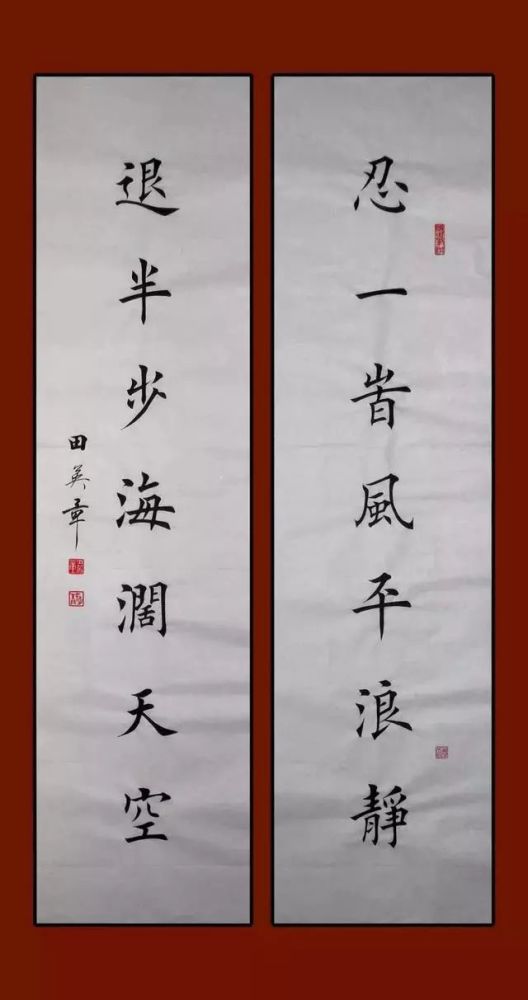 忍一峕風平浪靜
退半步海濶天空
田英章